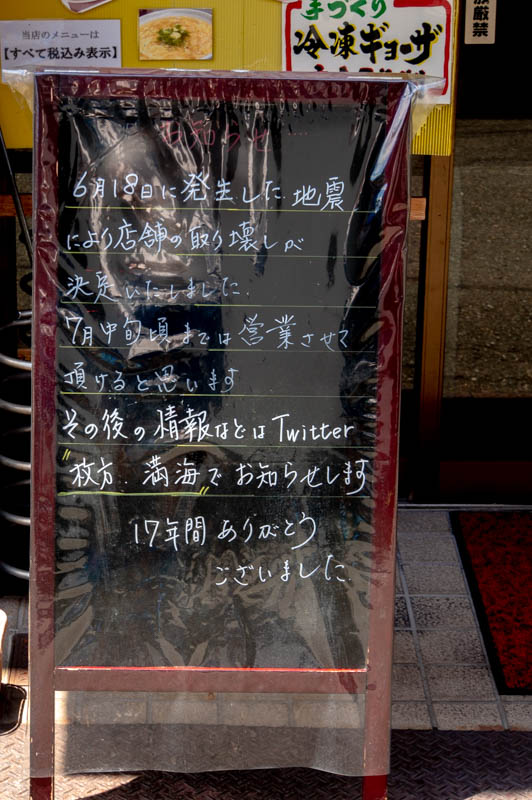 当店のメニューは
【すべて税込み表示】
手づくり
冷凍ギョーザ
厳禁
お知らせ
6月18日に発生した地震
により店舗の取り壊しが
決定いたしました.
7月中旬頃までは営業させて
頂けると思います
その後の情報などはTwitter
"枚方.満海"でお知らせします
17年間ありがとう
ございました.